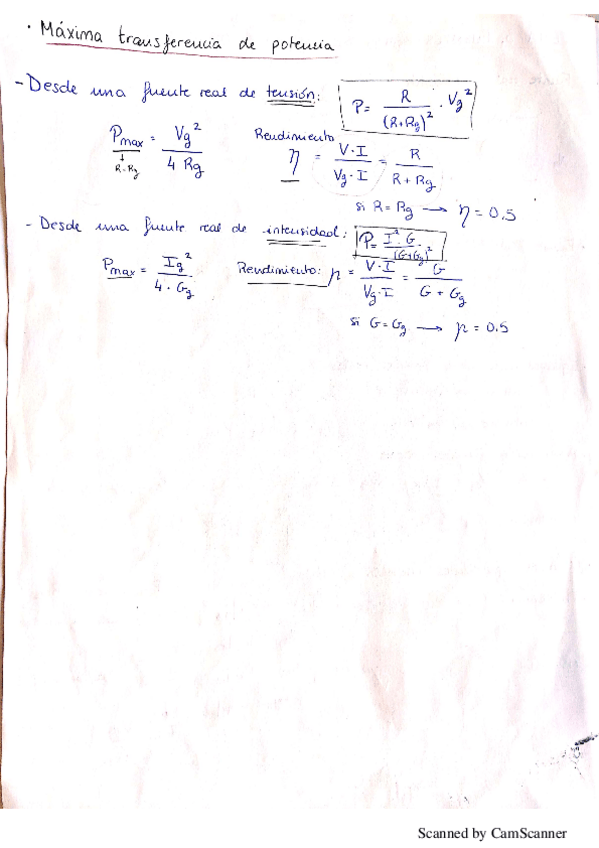 · Máxima transferencia de potencia
- Desde una fuente real de tensión: P = R / (R+Rg)² · Vg²
Pmax = Vg² / 4 Rg
↓
R=Rg
Rendimiento η = V·I / Vg·I = R / R + Rg
si R = Rg → η = 0.5
- Desde una fuente real de intensidad: P = I² · G / (G+Gg)²
Pmax = Ig² / 4 · Gg
Rendimiento: η = V·I / Vg·I = G / G + Gg
si G = Gg → η = 0.5
Scanned by CamScanner